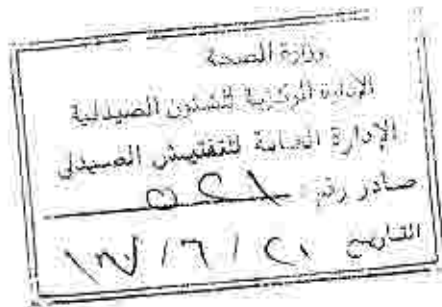 وزارة الصحة
الإدارة المركزية للشئون الصيدلية
الإدارة العامة للتفتيش الصيدلي
صادر رقم ٥٢١
التاريخ ٢١ / ٦ / ١٧